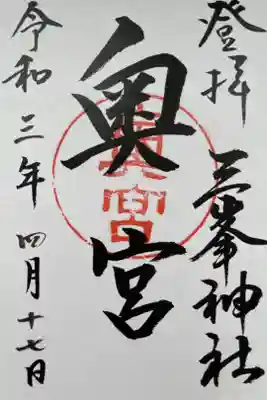 登拝
三峯神社
奥宮
奥宮
令和三年四月十七日